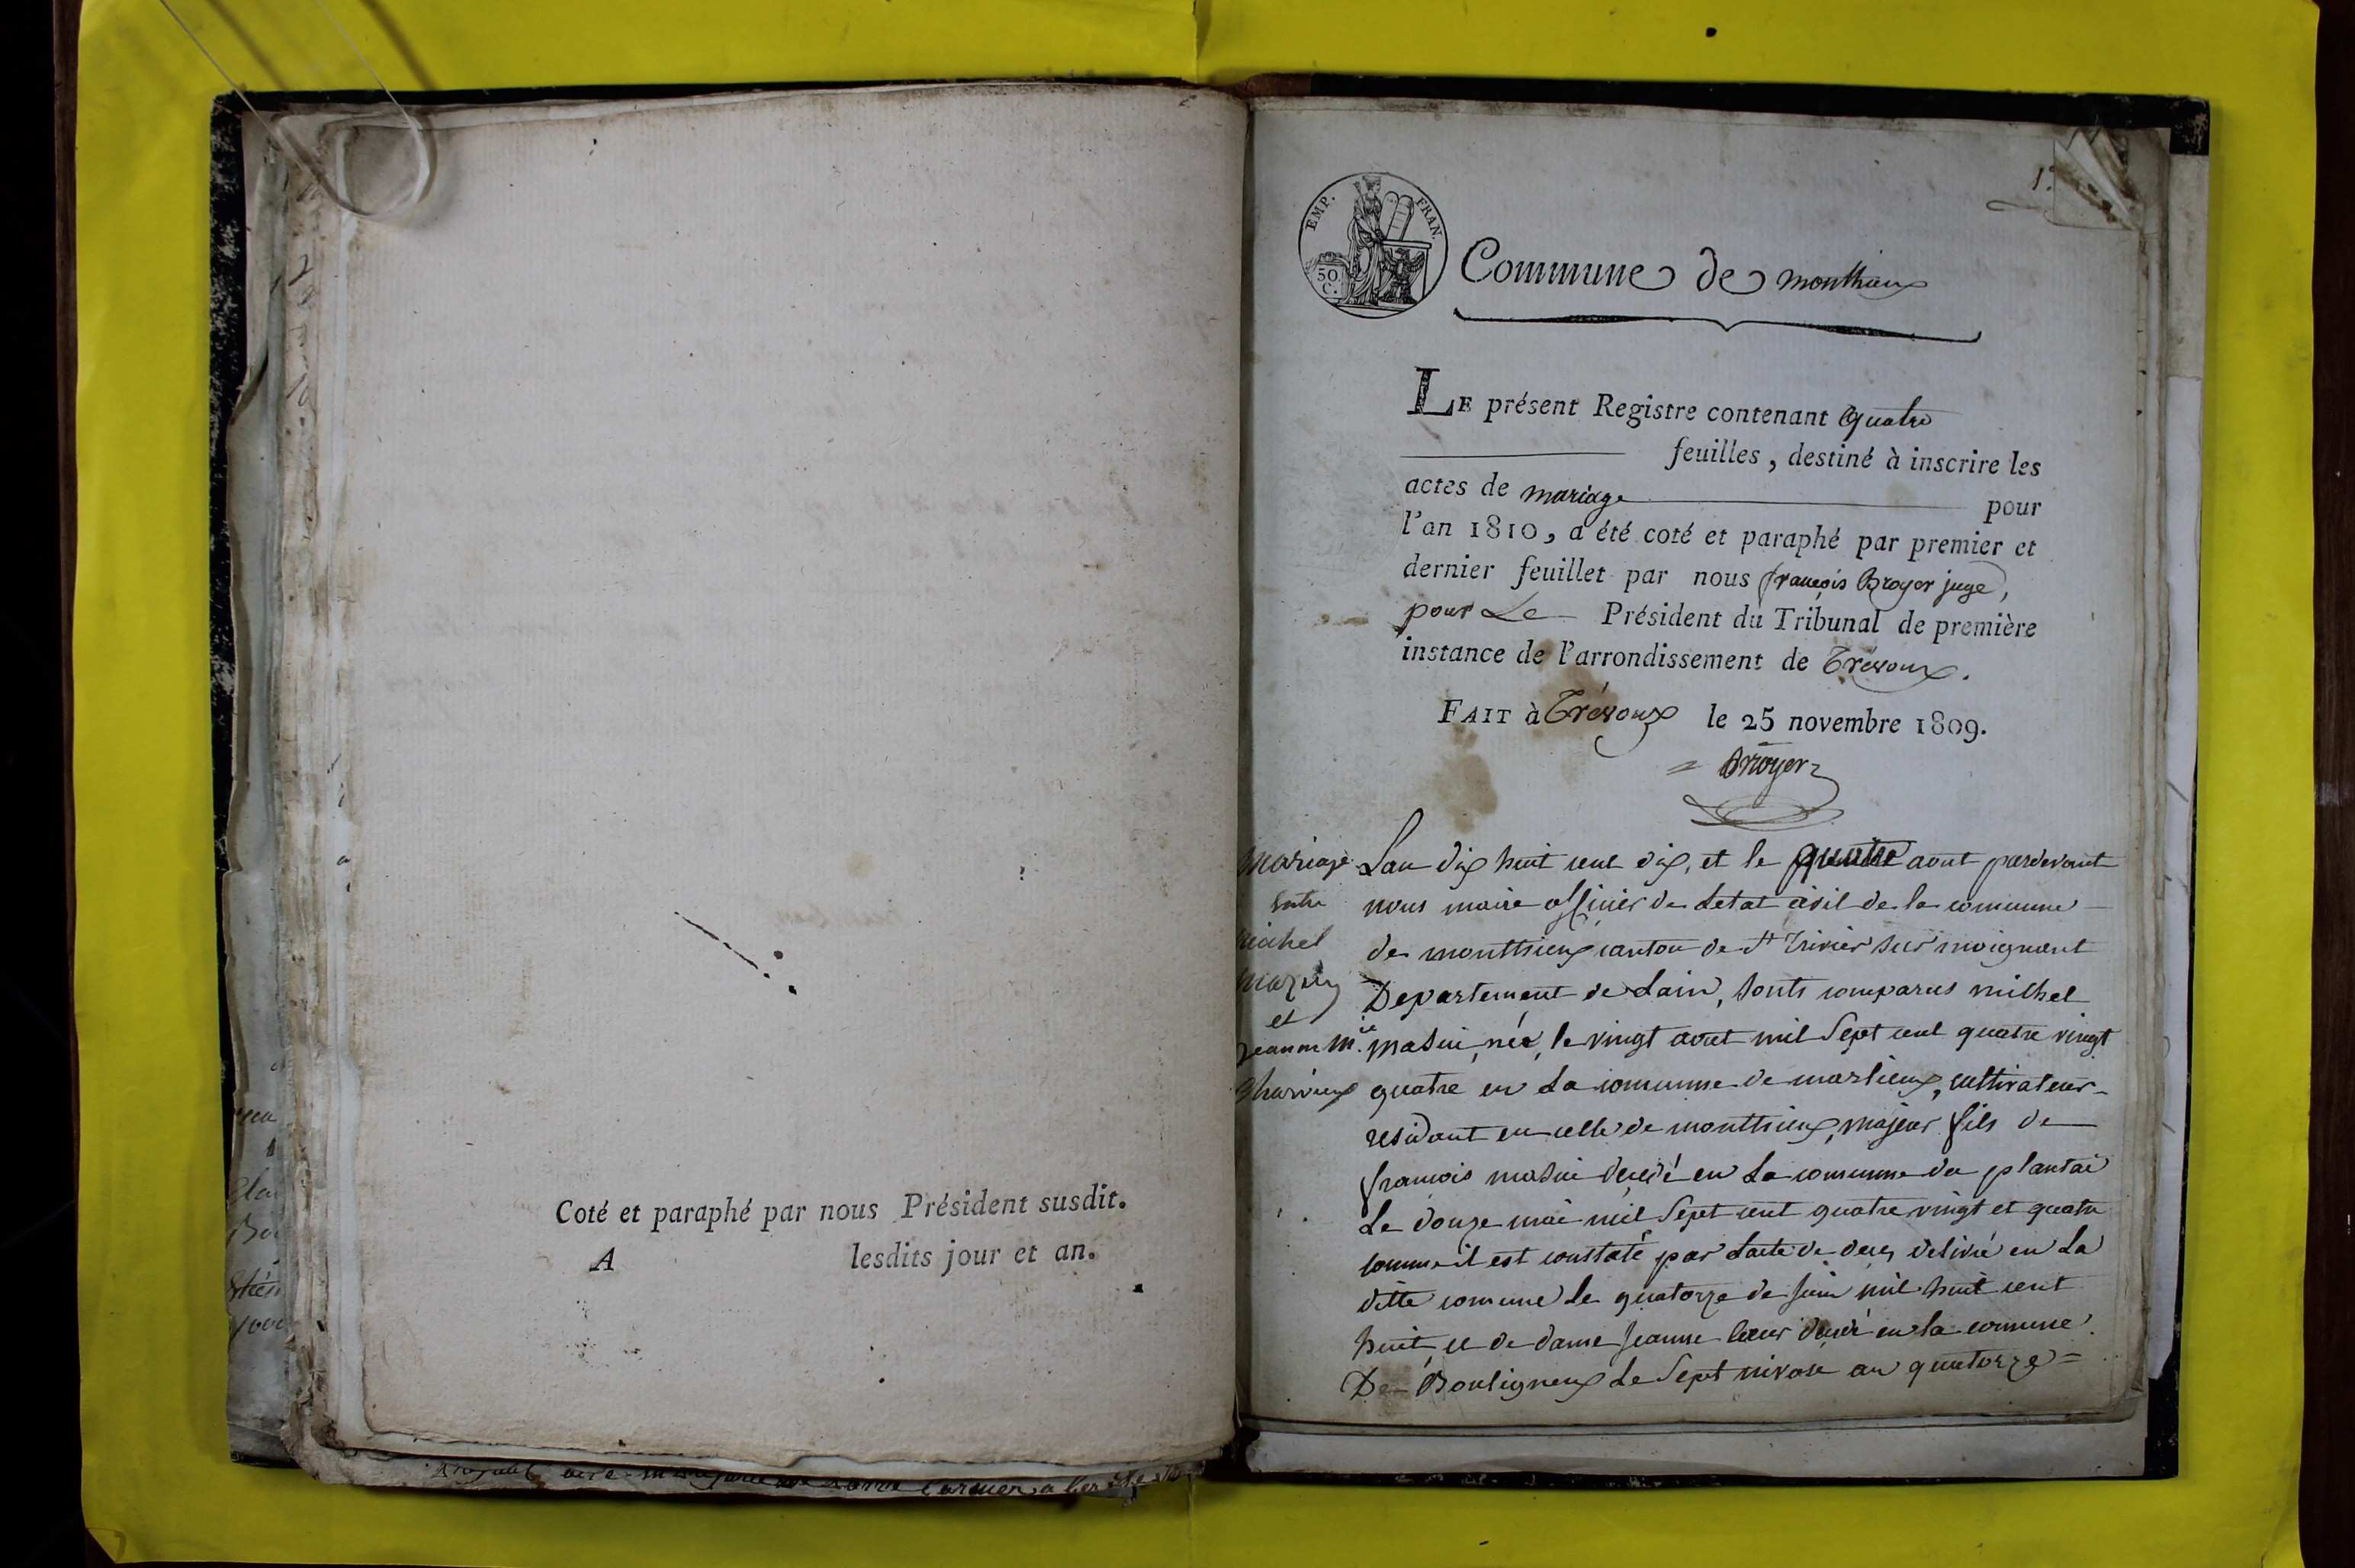 Coté et paraphé par nous Président susdit.
A lesdits jour et an.
1.
EMP. FRAN.
50 C.
Commune de monthieux
LE présent Registre contenant quatre
feuilles, destiné à inscrire les
actes de mariage pour
l'an 1810, a été coté et paraphé par premier et
dernier feuillet par nous françois Broyer juge,
pour Le Président du Tribunal de première
instance de l'arrondissement de Trévoux.
FAIT à Trévoux le 25 novembre 1809.
Broyer
mariage
entre
michel
mazuy
et
jeanne m.ie
Charvieux
Lan dix huit cent dix, et le quatre aout pardevant
nous maire officier de Letat civil de la comune
de monthieux canton de St Trivier sur moignant
Departement de Lain, sonts comparus michel
masui, née, le vingt aout mil sept cent quatre vingt
quatre en La comunne de marlieux, cultivateur
residant en celle de monthieux, majeur fils de
francois masui decedé en La comunne du plantai
Le douze mai mil sept cent quatre vingt et quatre
comme il est constaté par Lacte de deces délivré en La
ditte comune Le quatorze de juin mil huit cent
huit, et de dame jeanne decedé en la comune
De Bouligneux Le sept nivose an quatorze =